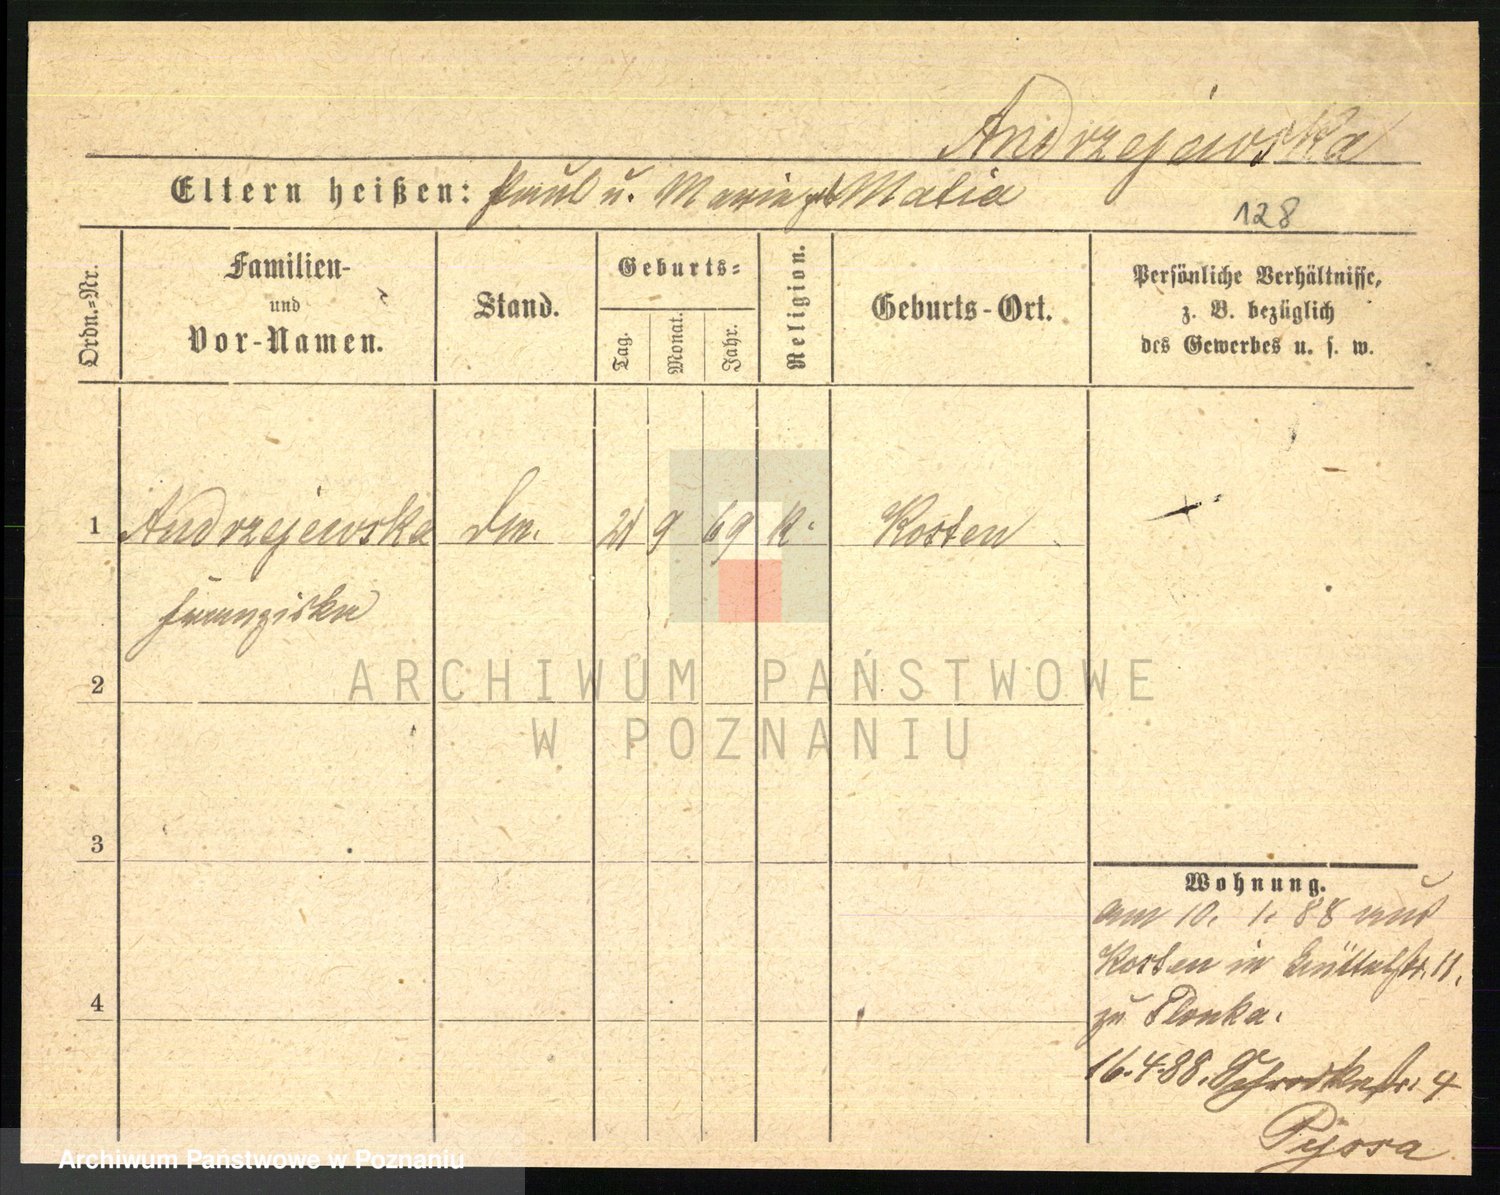 Andrzejewska
Eltern heißen: Paul u. Marie gb Malia
128
Ordn.=Nr.
Familien-
und
Vor-Namen.
Stand.
Geburts=
Tag.
Monat.
Jahr.
Religion.
Geburts-Ort.
Persönliche Verhältnisse,
z. B. bezüglich
des Gewerbes u. s. w.
1 Andrzejewska Dm. 21 9 69 K. Kosten
Franziska
2
ARCHIWUM PAŃSTWOWE
W POZNANIU
3
Wohnung.
am 10. 1. 88 aus
Kosten in Büttelstr. 11.
4
zu Plonka.
16.4.88. Schrodkastr. 4
Pyssa
Archiwum Państwowe w Poznaniu